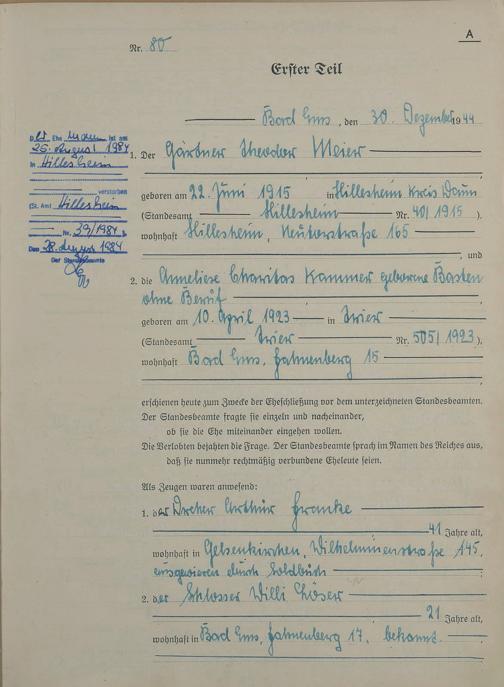 A
Nr. 80
Erster Teil
Bad Ems, den 30. Dezember 1944
1. Der Gärtner Theodor Meier
geboren am 22. Juni 1915 in Hillesheim Kreis Daun
(Standesamt Hillesheim Nr. 40/1915),
wohnhaft Hillesheim, 165
, und
2. die Anneliese Charitas Kammer geborene Basten
ohne Beruf
geboren am 10. April 1923 in Trier
(Standesamt Trier Nr. 505/1923),
wohnhaft Bad Ems, Hahnenberg 15
erschienen heute zum Zwecke der Eheschließung vor dem unterzeichneten Standesbeamten.
Der Standesbeamte fragte sie einzeln und nacheinander,
ob sie die Ehe miteinander eingehen wollen.
Die Verlobten bejahten die Frage. Der Standesbeamte sprach im Namen des Reiches aus,
daß sie nunmehr rechtmäßig verbundene Eheleute seien.
Als Zeugen waren anwesend:
1. der Dreher Arthur Franke
41 Jahre alt,
wohnhaft in Gelsenkirchen, Wilhelminenstraße 145,
ausgewiesen durch Soldbuch
2. der Schlosser Willi Löser
21 Jahre alt,
wohnhaft in Bad Ems, Hahnenberg 17, bekannt.
D er Ehemann ist am
25. August 1984
in Hillesheim
verstorben
(St. Amt Hillesheim
Nr. 39/1984)
Den 28. August 1984
Der Standesbeamte